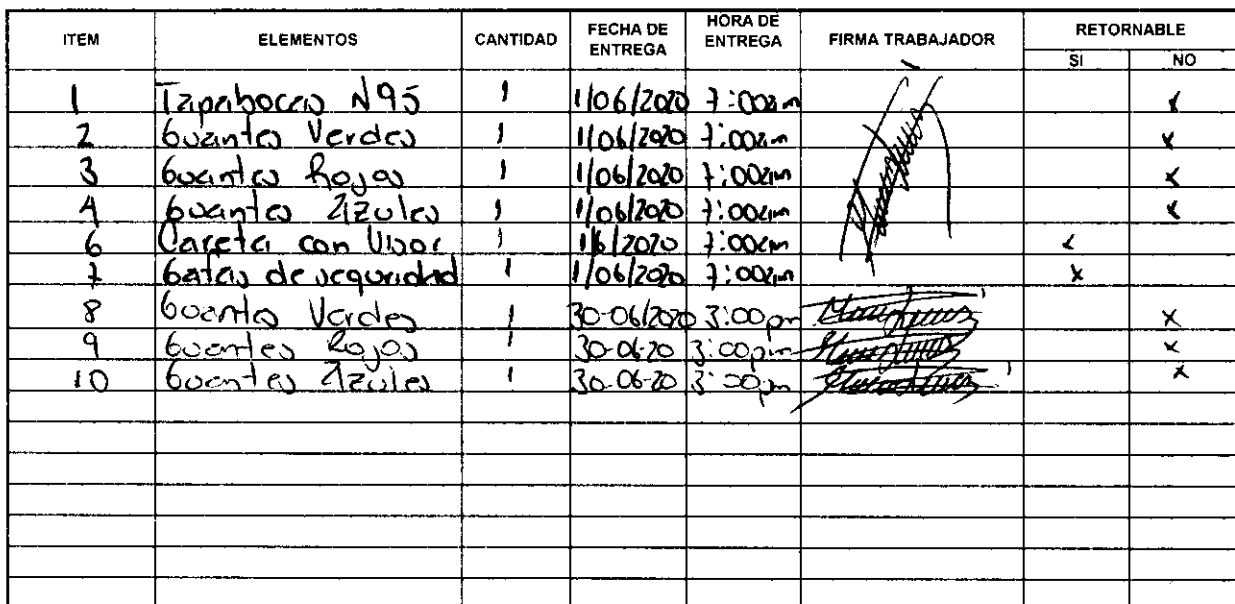 ITEM ELEMENTOS CANTIDAD FECHA DE ENTREGA HORA DE ENTREGA FIRMA TRABAJADOR RETORNABLE
SI NO
1 Tapabocas N95 1 1/06/2020 7:00am x
2 Guantes Verdes 1 1/06/2020 7:00am x
3 Guantes Rojos 1 1/06/2020 7:00am x
4 Guantes Azules 1 1/06/2020 7:00am x
6 Careta con Visor 1 1/6/2020 7:00am x
7 Gafas de seguridad 1 1/06/2020 7:00am x
8 Guantes Verdes 1 30-06/2020 3:00pm x
9 Guantes Rojos 1 30-06-20 3:00pm x
10 Guantes Azules 1 30-06-20 3:00pm x